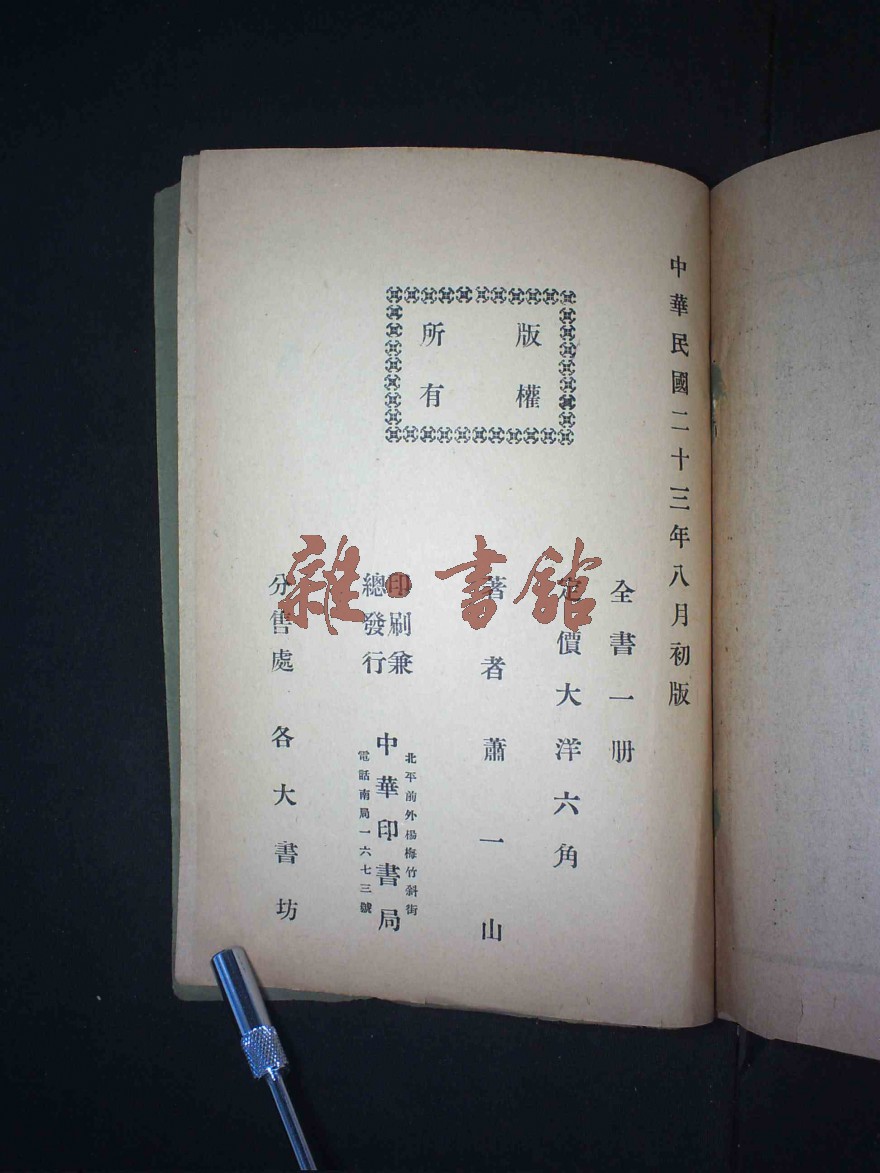 中華民國二十三年八月初版
版權
所有
全書一册
定價大洋六角
著者蕭一山
印刷兼
總發行
北平前外楊梅竹斜街
中華印書局
電話南局一六七三號
分售處各大書坊
雜·書館